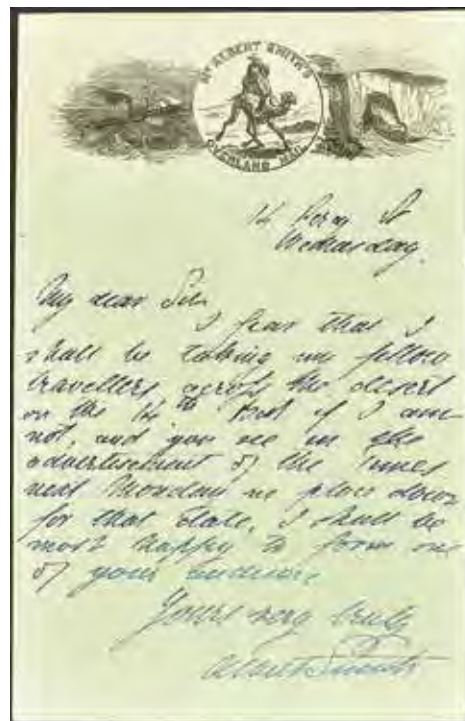 Mr ALBERT SMITH'S
OVERLAND MAIL
14 Percy St
Wednesday.
My dear Sir
I fear that I
shall be taking my fellow
travellers across the desert
on the 14th But if I am
not, and you see in the
advertisement of the Times
next Monday no place down
for that date, I shall be
most happy to form one
of your audience
Yours very truly
Albert Smith